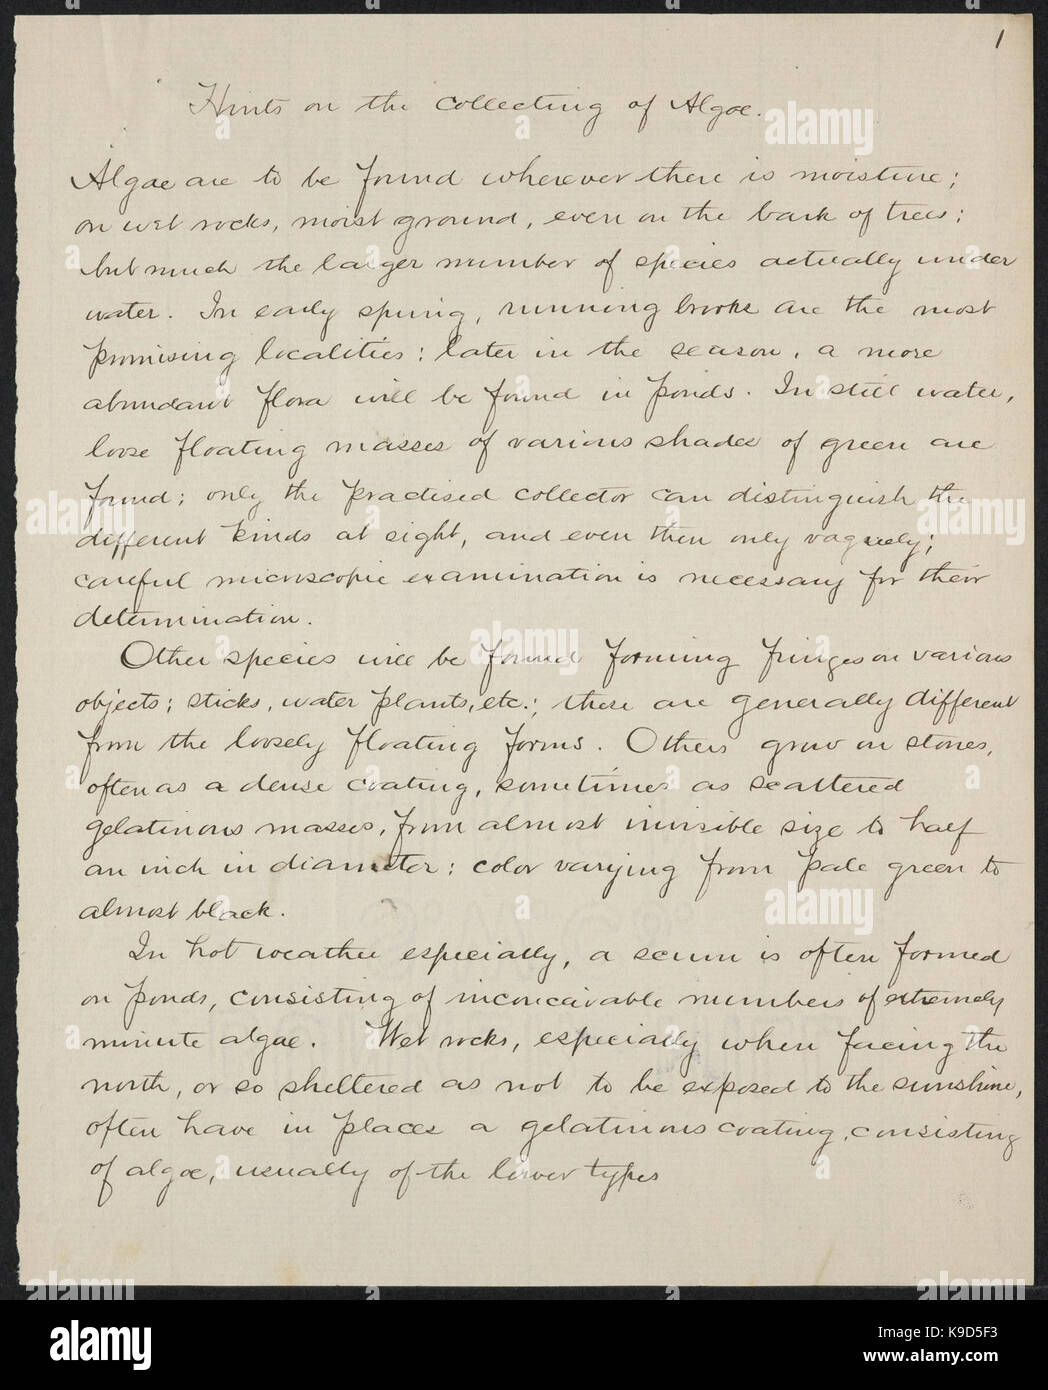 1
Hints on the collecting of Algae.
Algae are to be found wherever there is moisture;
on wet rocks, moist ground, even on the bark of trees;
but much the larger number of species actually under
water. In early spring, running brooks are the most
promising localities; later in the season, a more
abundant flora will be found in ponds. In still water,
loose floating masses of various shades of green are
found; only the practised collector can distinguish the
different kinds at sight, and even then only vaguely;
careful microscopic examination is necessary for their
determination.
Other species will be found forming fringes on various
objects; sticks, water plants, etc.; these are generally different
from the loosely floating forms. Others grow on stones,
often as a dense coating, sometimes as scattered
gelatinous masses, from almost invisible size to half
an inch in diameter; color varying from pale green to
almost black.
In hot weather especially, a scum is often formed
on ponds, consisting of inconceivable numbers of extremely
minute algae. Wet rocks, especially when facing the
north, or so sheltered as not to be exposed to the sunshine,
often have in places a gelatinous coating, consisting
of algae, usually of the lower types
alamy
alamy stock photo
K9D5F3
www.alamy.com